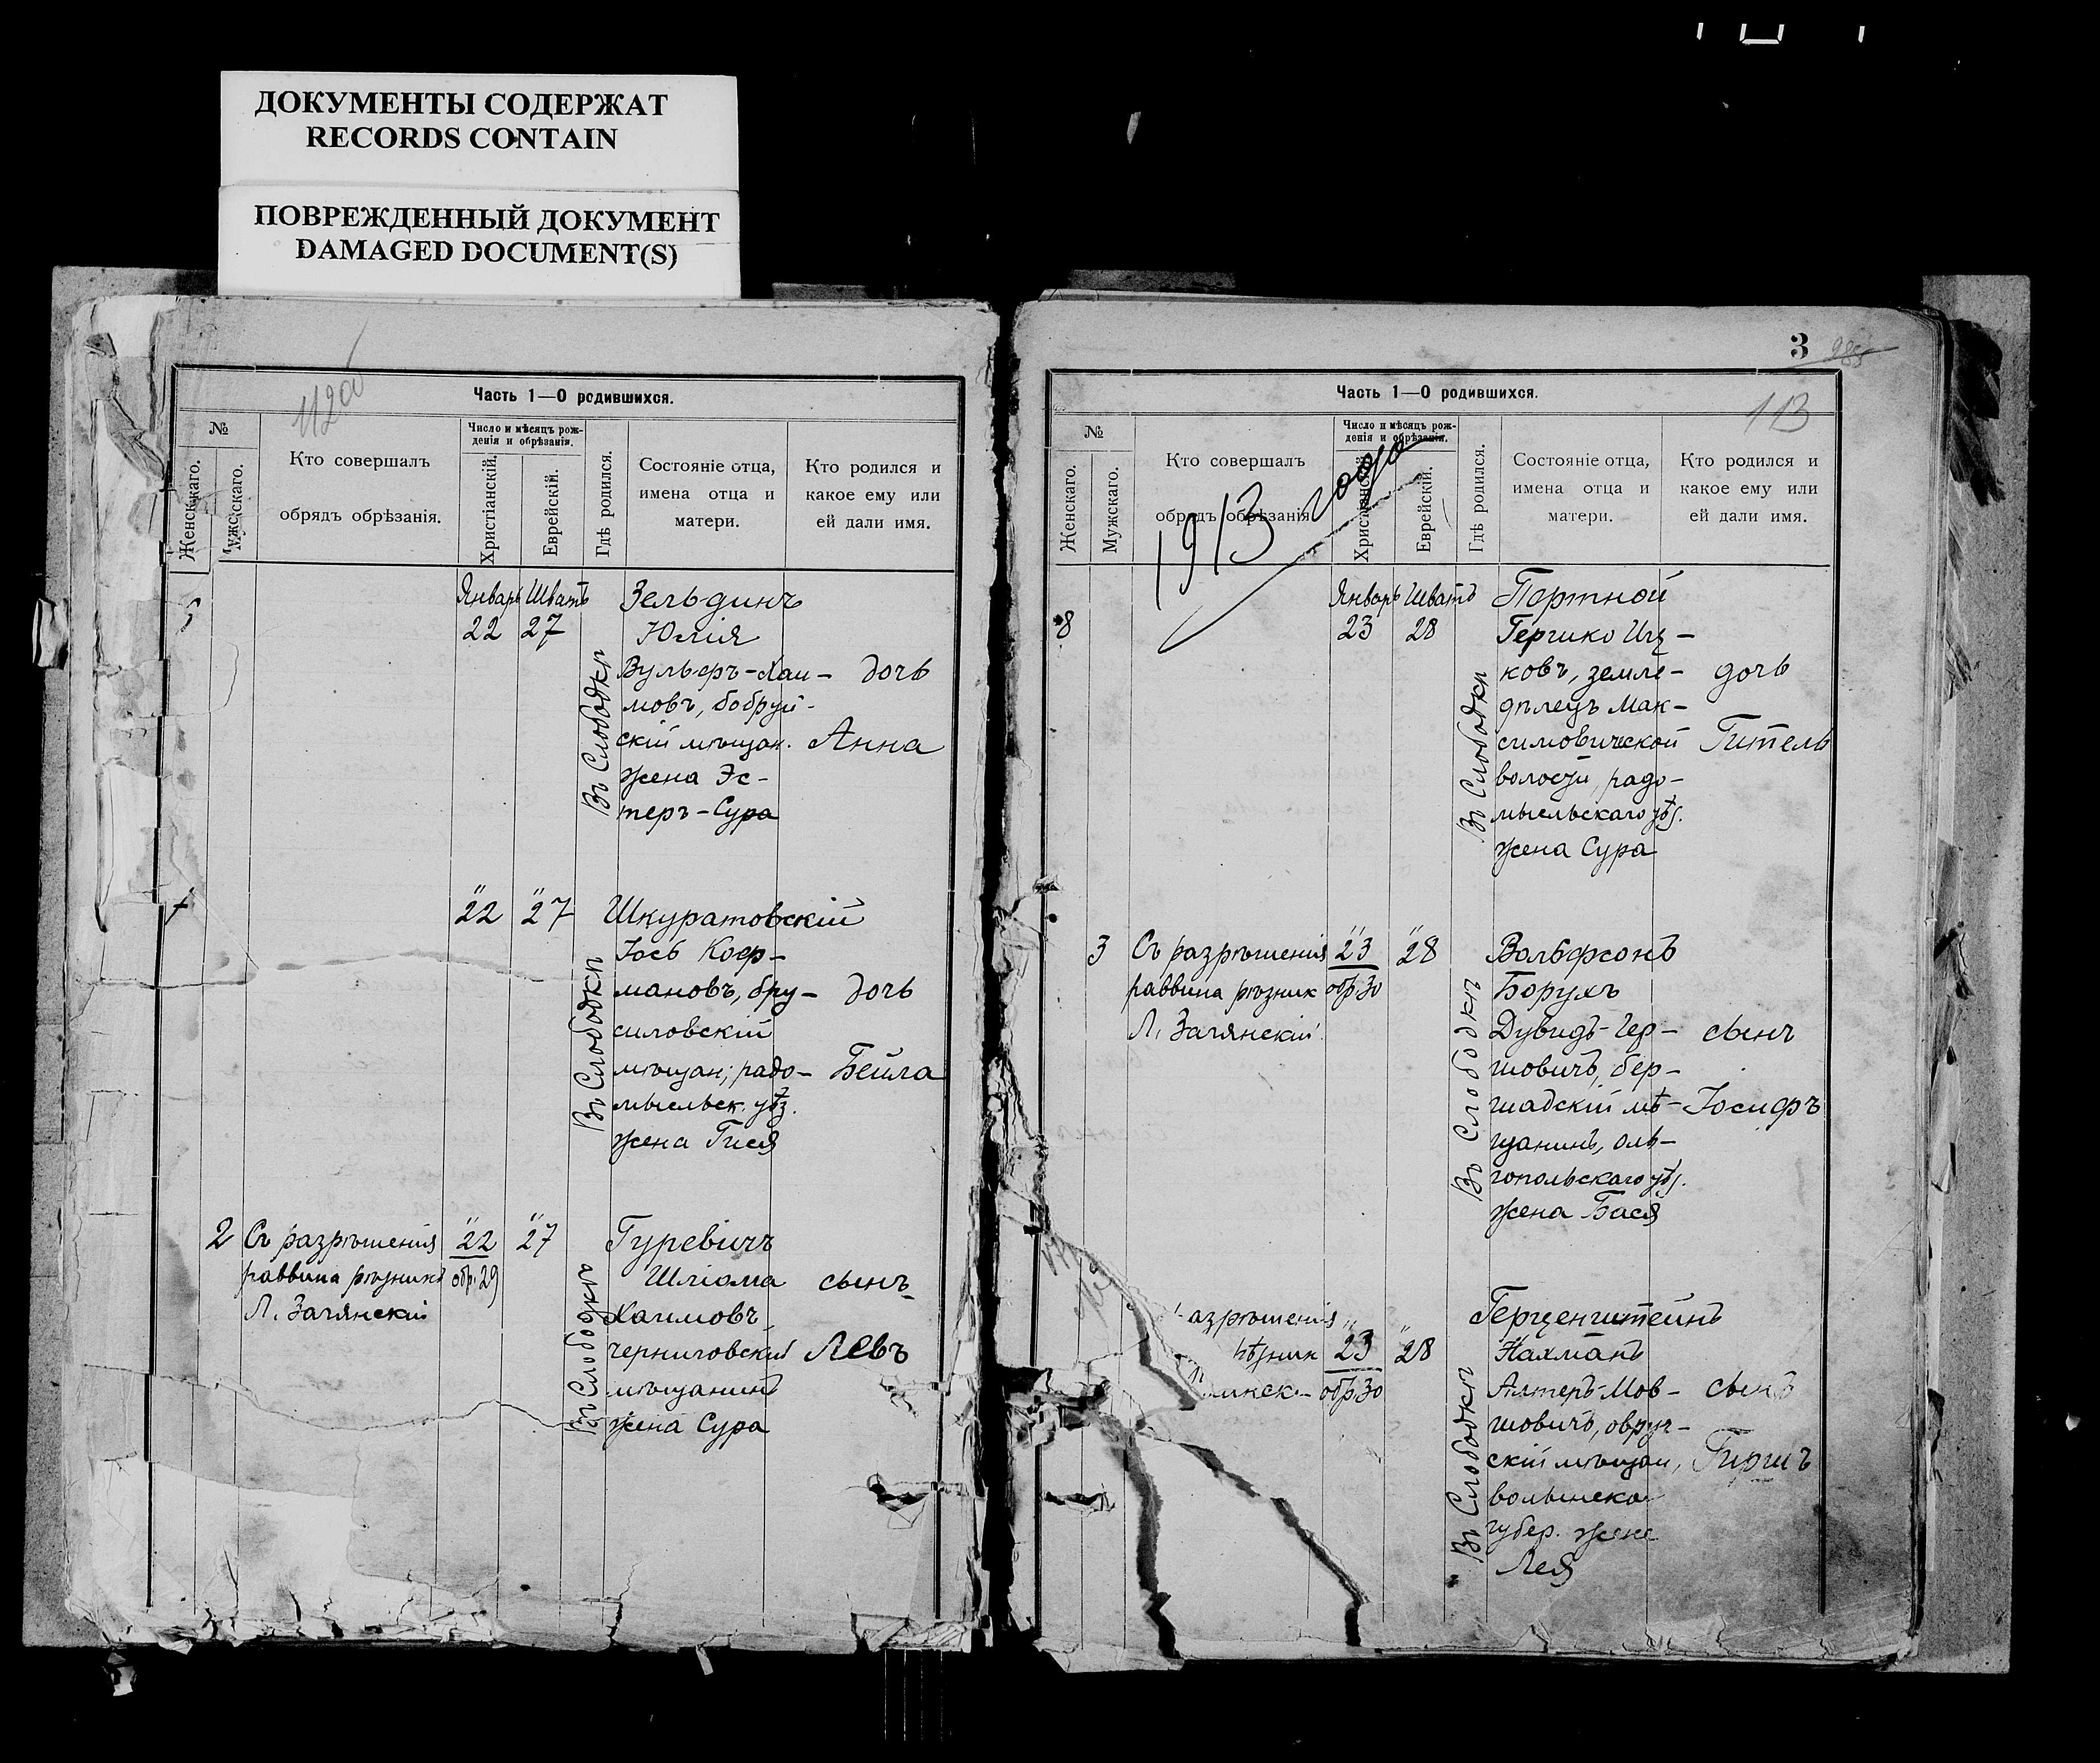 ДОКУМЕНТЫ СОДЕРЖАТ
RECORDS CONTAIN
ПОВРЕЖДЕННЫЙ ДОКУМЕНТ
DAMAGED DOCUMENT(S)
112об
Часть 1—О родившихся.
№
Женскаго.
Мужскаго.
Кто совершалъ
обрядъ обрѣзанія.
Число и мѣсяцъ рож-
денія и обрѣзанія.
Христіанскій.
Еврейскій.
Гдѣ родился.
Состояніе отца,
имена отца и
матери.
Кто родился и
какое ему или
ей дали имя.
Январь Шватъ Зельдинъ
22 27 Юлія
Въ Слободкѣ
Вульфъ-Хаи- дочь
мовъ, бобруй-
скій мѣщан. Анна
жена Эс-
теръ-Сура
" "
22 27 Шкуратовскій
Въ Слободкѣ
Іось
мановъ, бру- дочь
силовскій
мѣщан; радо- Бейла
мысльск. уѣз.
жена Гися
" "
2 Съ разрѣшенія 22 27 Гуревичъ
раввина рѣзникъ обр. 29 Шліома сынъ
Въ Слободкѣ
Л. Загянскій Хаимовъ
черниговскій Левъ
мѣщанинъ
жена Сура
3
113
Часть 1—О родившихся.
№
Женскаго.
Мужскаго.
Кто совершалъ
обрядъ обрѣзанія.
Число и мѣсяцъ рож-
денія и обрѣзанія.
Христіанскій.
Еврейскій.
Гдѣ родился.
Состояніе отца,
имена отца и
матери.
Кто родился и
какое ему или
ей дали имя.
1913 года
Январь Шватъ Портной
8 23 28 Гершко Иц-
Въ Слободкѣ
ковъ, земле- дочь
дѣлецъ Мак-
симовической Гитель
волости, радо-
мысльскаго уѣз.
жена Сура
" "
3 Съ разрѣшенія 23 28 Вольфсонъ
раввина рѣзник обр. 30 Борухъ
Въ Слободкѣ
Л. Загянскій Дувидъ-Гер- сынъ
шовичъ, бер-
шадскій мѣ- Іосифъ
щанинъ, оль-
гопольскаго уѣз.
жена Бася
азрѣшенія " " Герценштейнъ
ѣзник 23 28 Нахманъ
Въ Слободкѣ
обр. 30 Алтеръ-Мов- сынъ
шовичъ, овруч-
скій мѣщан, Гиршъ
волынской
губер. жена
Лея